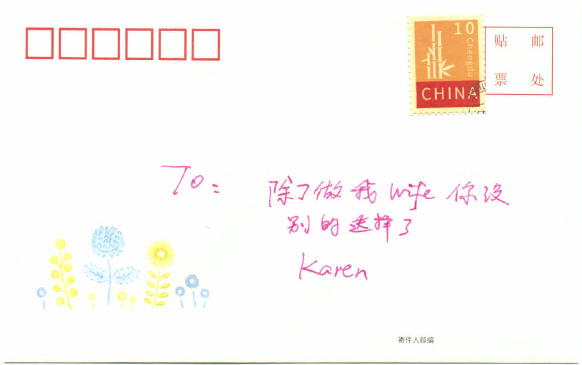 10
Chengdu
CHINA
贴 邮
票 处
To:
除了做我wife你没
别的选择了
Karen
寄件人邮编